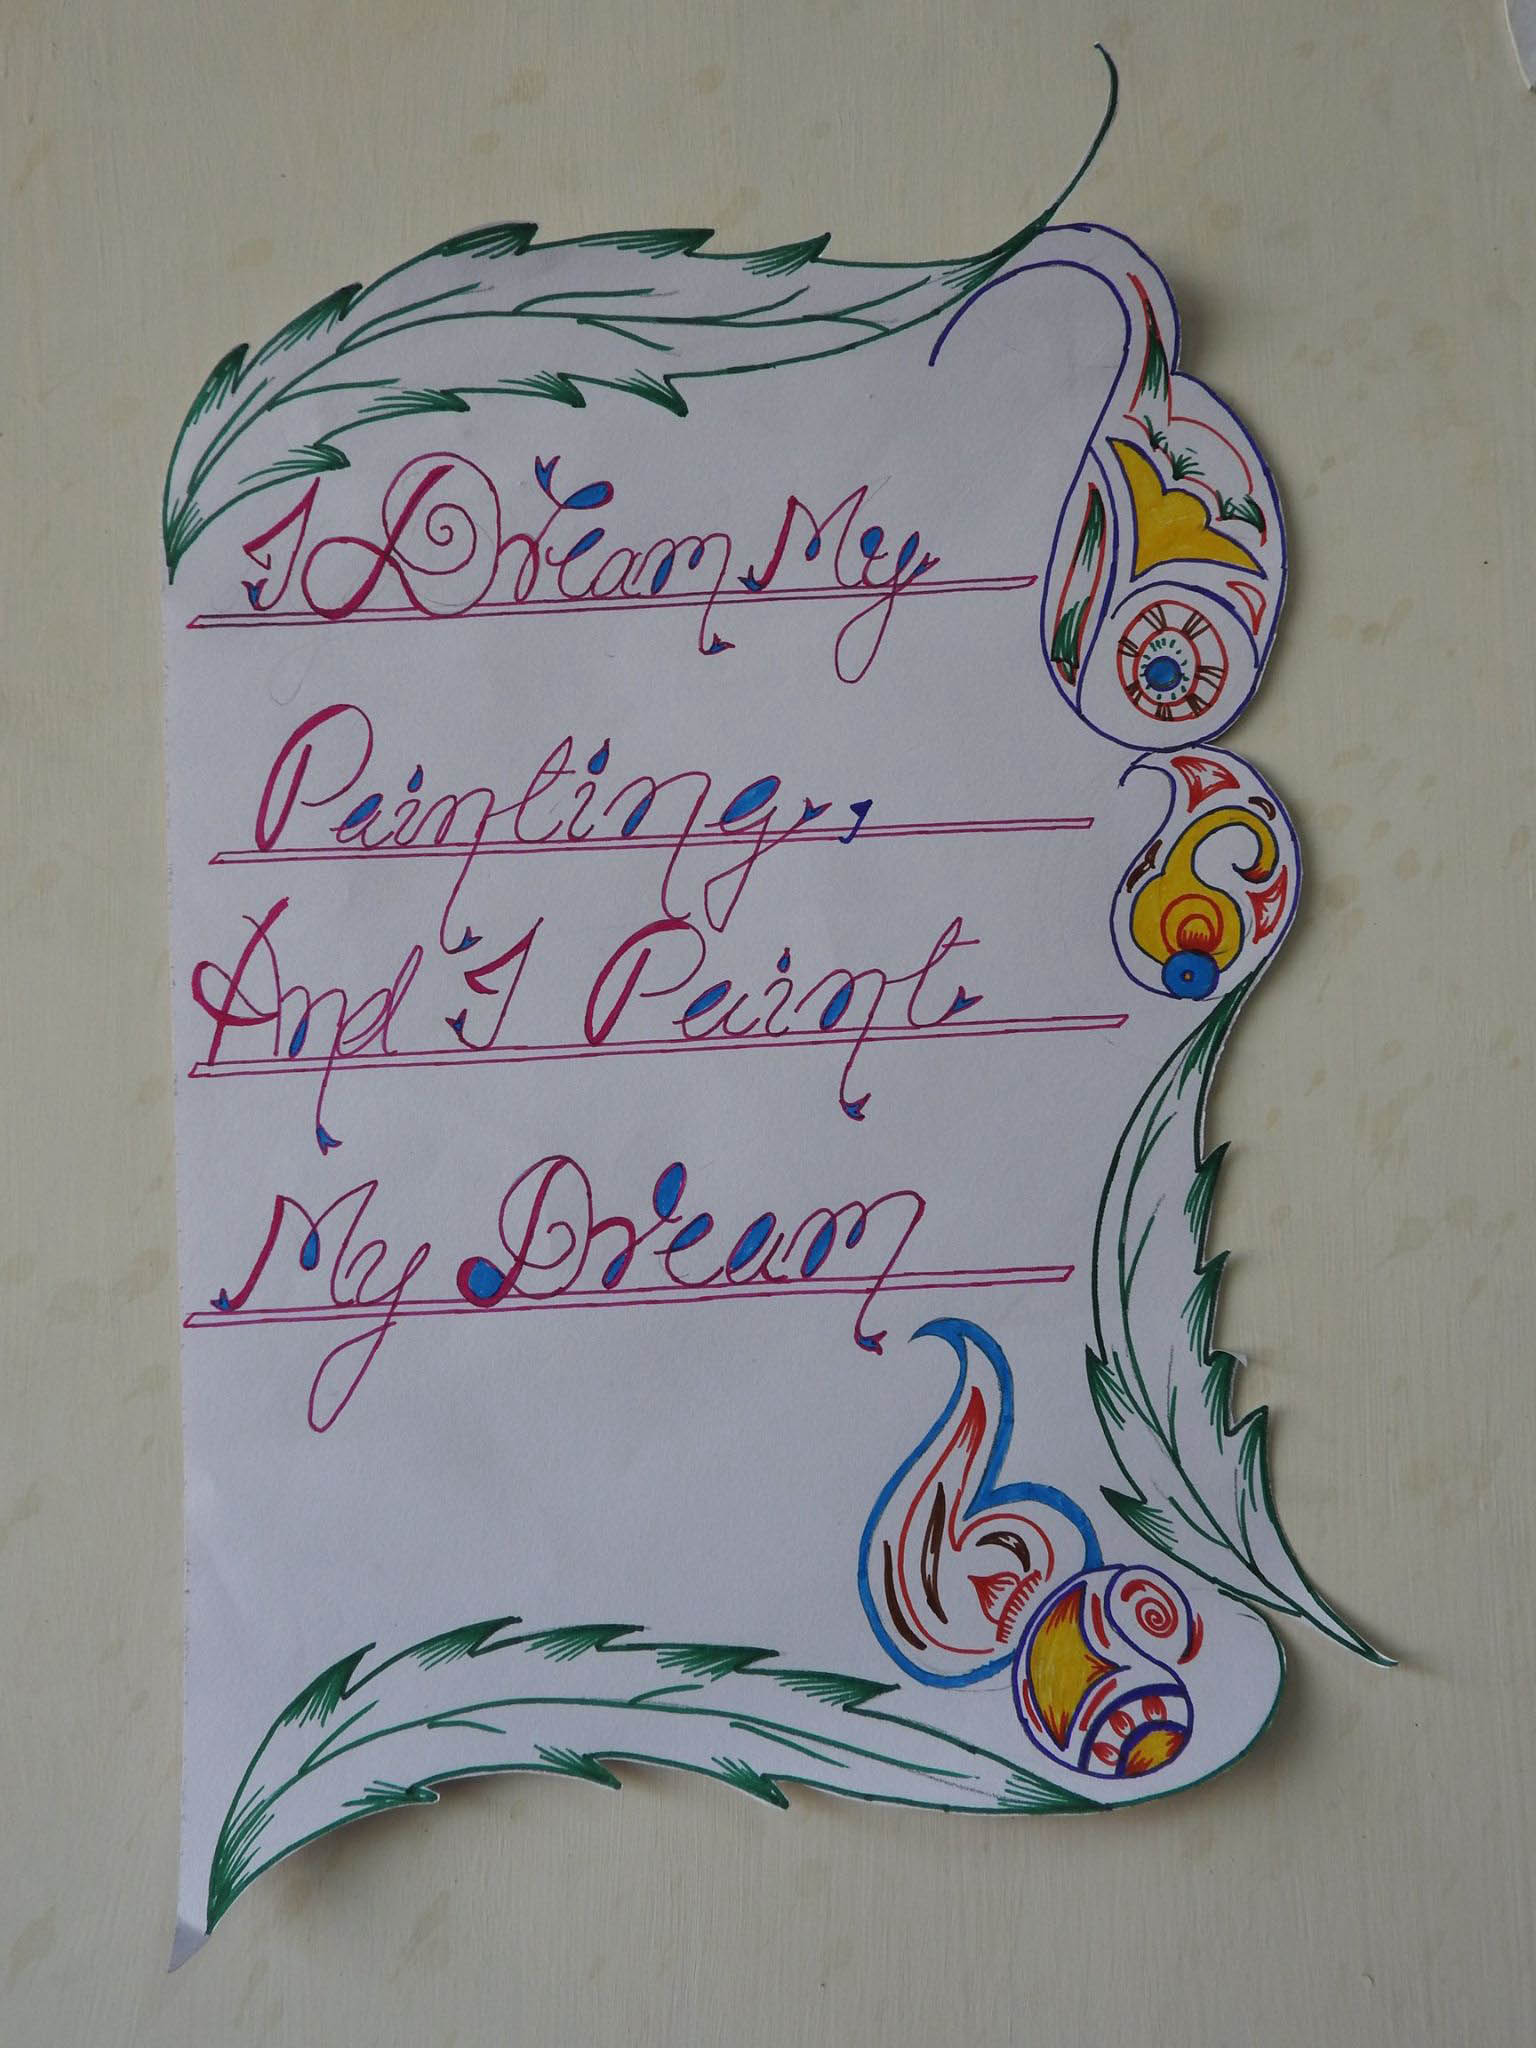 I Dream My
Painting,
And I Paint
My Dream